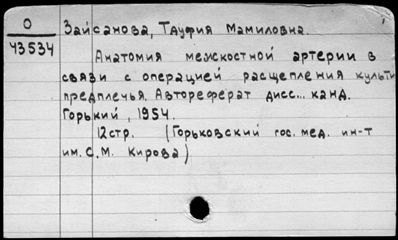 О
43534
Зайсанова, Тауфия Мамиловна.
Анатомия межкостной артерии в
связи с операцией расщепления культи
предплечья. Автореферат дисс... канд.
Горький, 1954.
12стр. (Горьковский гос. мед. ин-т
им. С.М. Кирова)